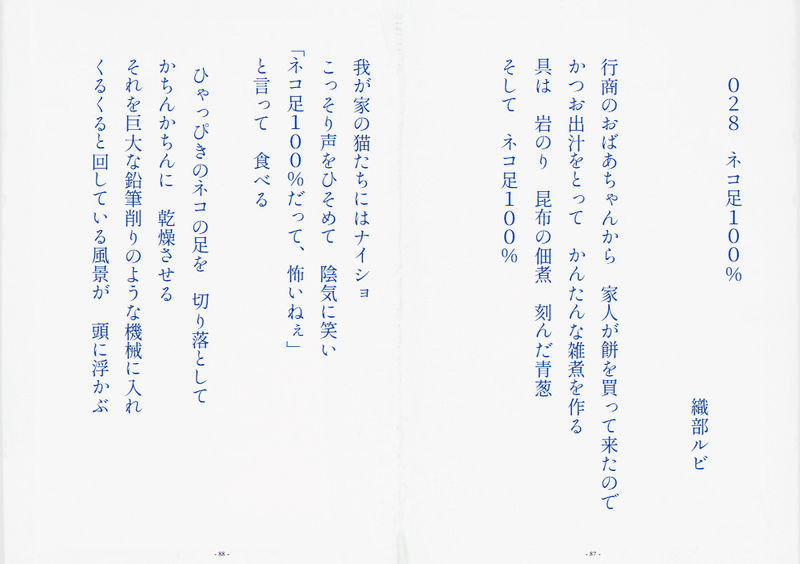 028　ネコ足100%
織部ルビ
行商のおばあちゃんから　家人が餅を買って来たので
かつお出汁をとって　かんたんな雑煮を作る
具は　岩のり　昆布の佃煮　刻んだ青葱
そして　ネコ足100%
- 87 -
我が家の猫たちにはナイショ
こっそり声をひそめて　陰気に笑い
「ネコ足100%だって、怖いねぇ」
と言って　食べる
ひゃっぴきのネコの足を　切り落として
かちんかちんに　乾燥させる
それを巨大な鉛筆削りのような機械に入れ
くるくると回している風景が　頭に浮かぶ
- 88 -